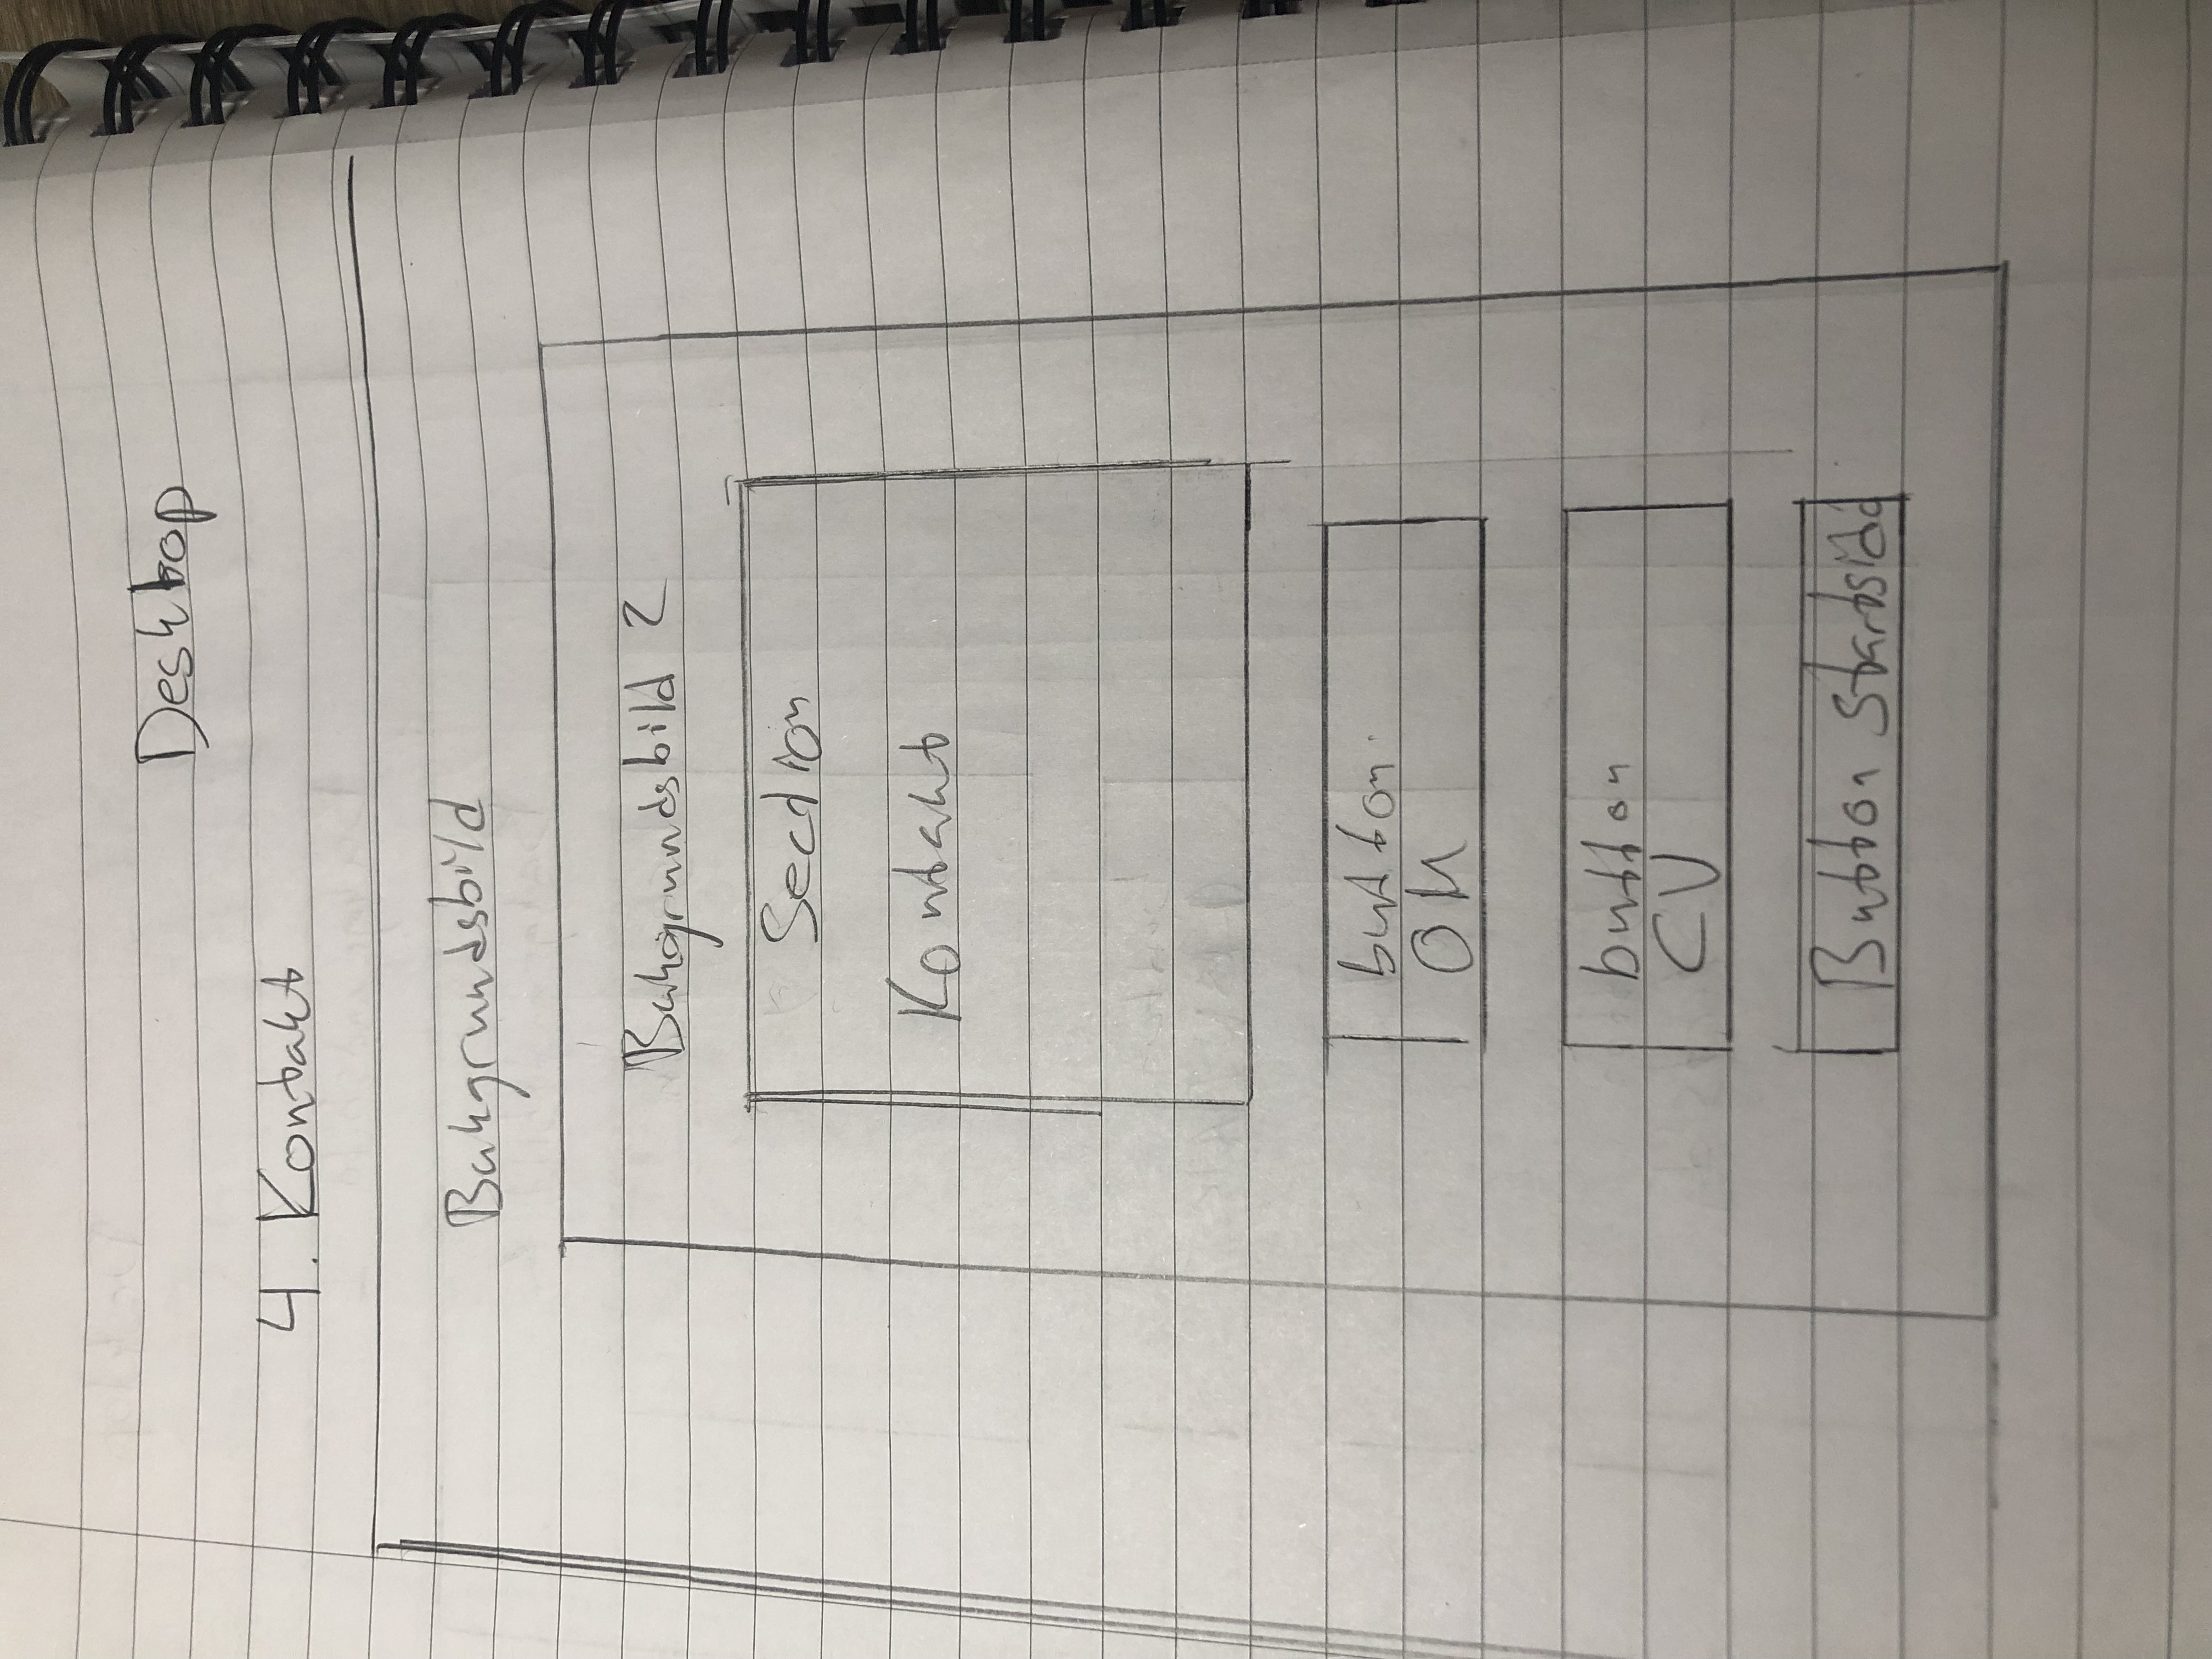 Desktop
4. Kontakt
Bakgrundsbild
Bakgrundsbild 2
Section
Kontakt
button
OM
button
CV
Button Startsida